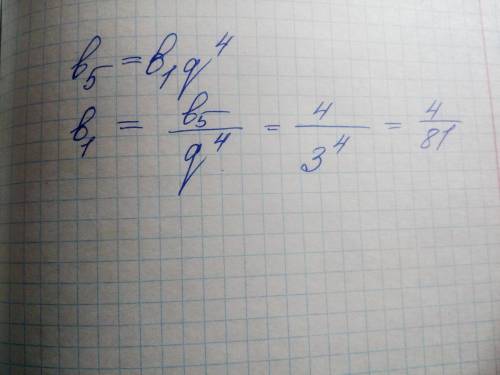 b₅ = b₁q⁴
b₁ = b₅/q⁴ = 4/3⁴ = 4/81